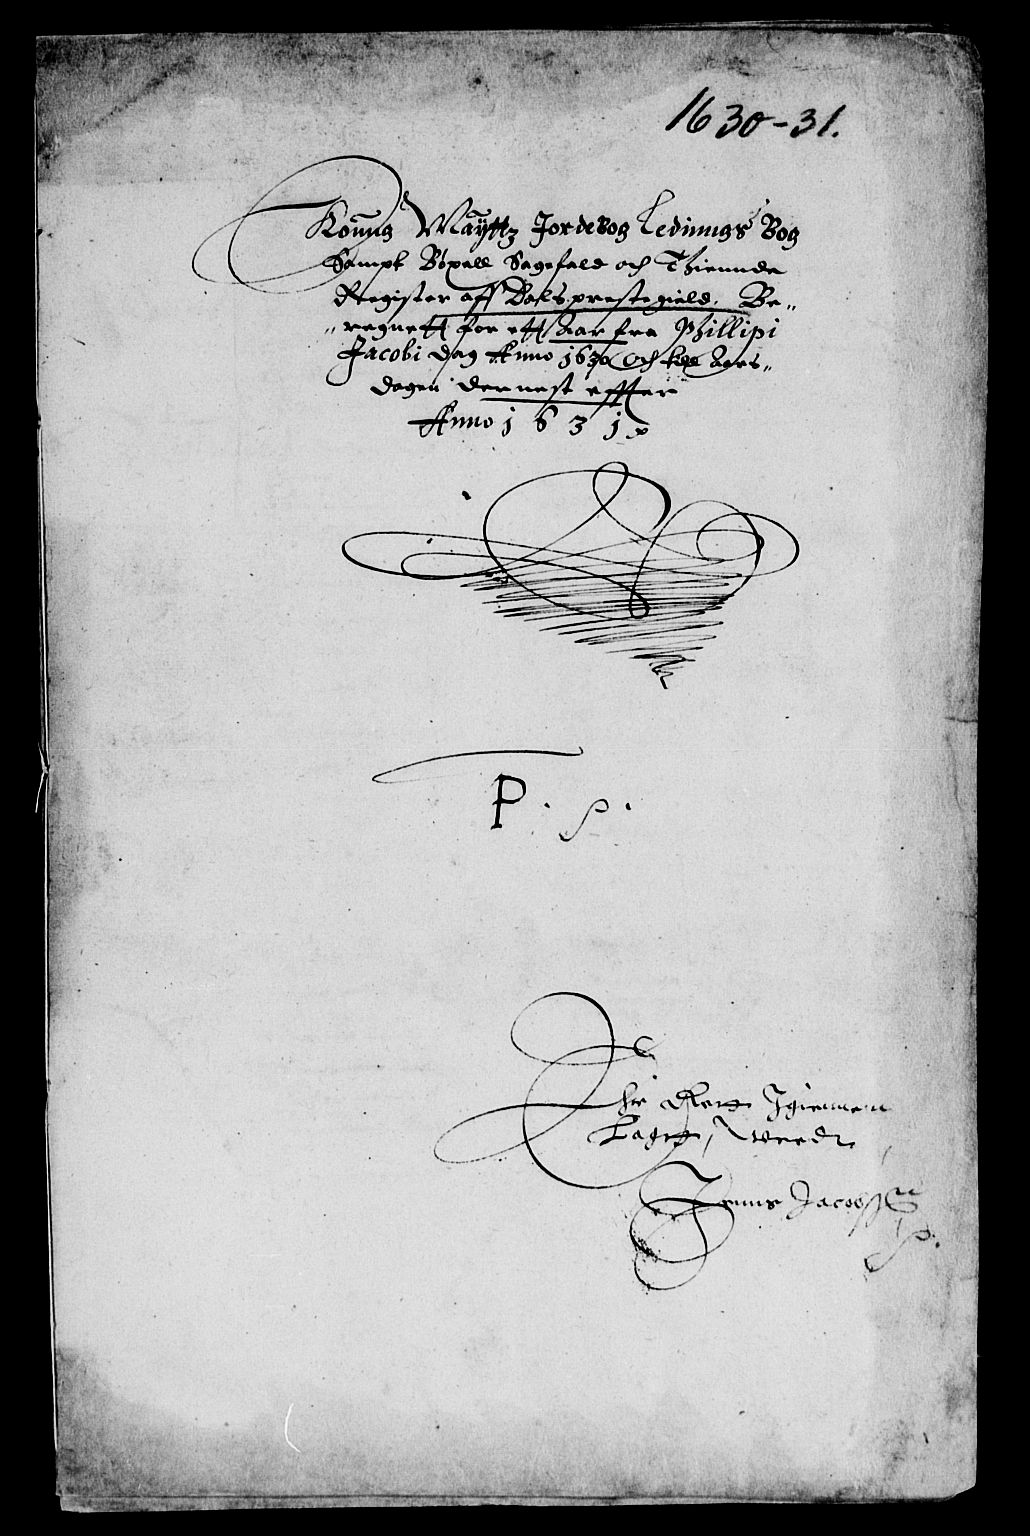 1630-31.
Konng Maÿttz Jordebog Lednings Bog
Sampt Böxell Sagefald och Thiennde
Register aff Dals prestegield. Be„
„regnett for ett Aar fra Phillipi
Jacobi dag Anno 1630 Och till Aars„
dagen dernest effter
Anno 1631
P.
Jenns Jacobss